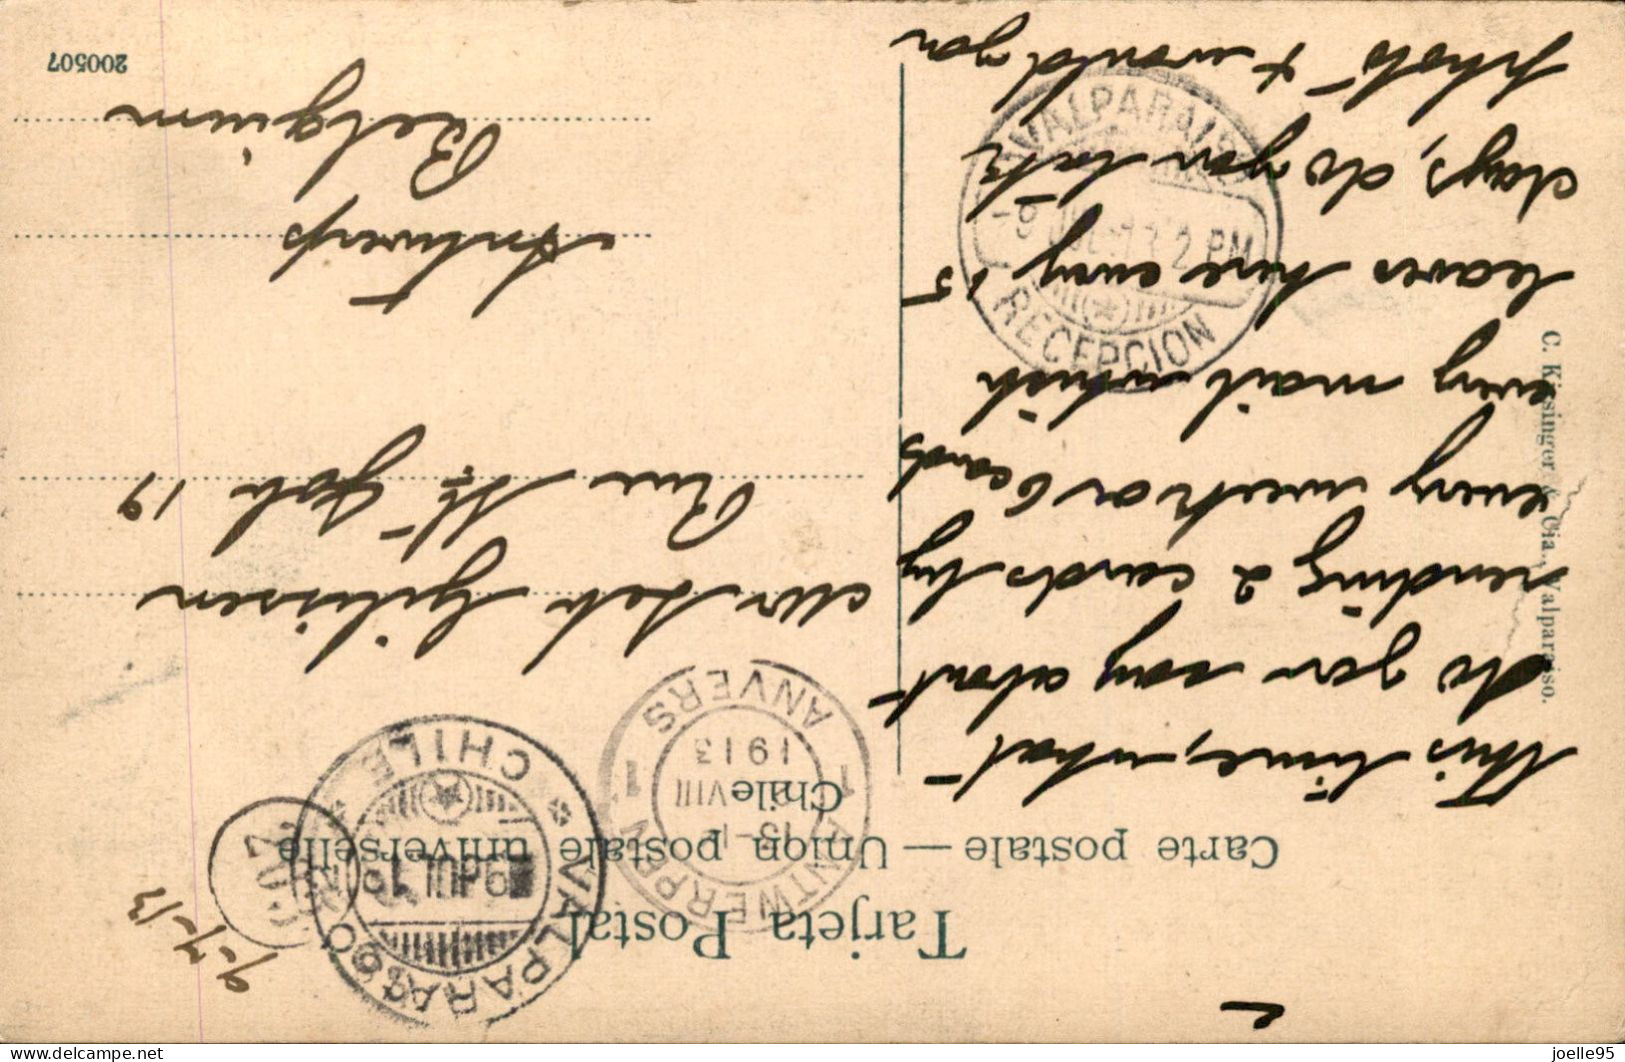 Tarjeta Postal
Carte postale — Union postale universelle
Chile
9-7-13
This time, what
do you say about
sending 2 cards by
every week or 6 cards
every mail which
leaves here every 15
days, do you take
photo + would you
Mr Seb Gilissen
Rue St Gob 19
Antwerp
Belgium
200507
C. Kirsinger & Cia., Valparaiso.
VALPARAISO
CHILE
ANTWERPEN
1913
ANVERS
1
1
VALPARAISO
-9 JUL 13 2 PM
RECEPCION
delcampe.net
joelle95